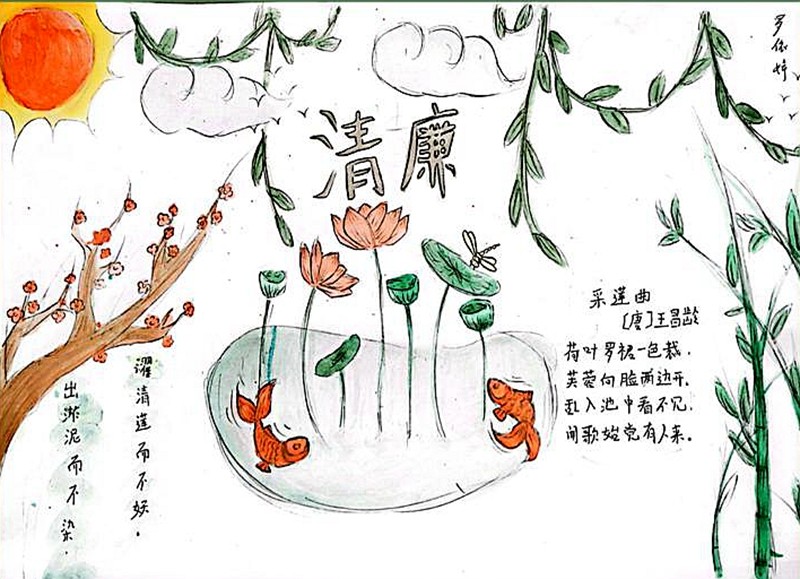 清廉
采莲曲
[唐]王昌龄
荷叶罗裙一色裁,
芙蓉向脸两边开,
乱入池中看不见,
闻歌始觉有人来。
出淤泥而不染.
濯清莲而不妖.